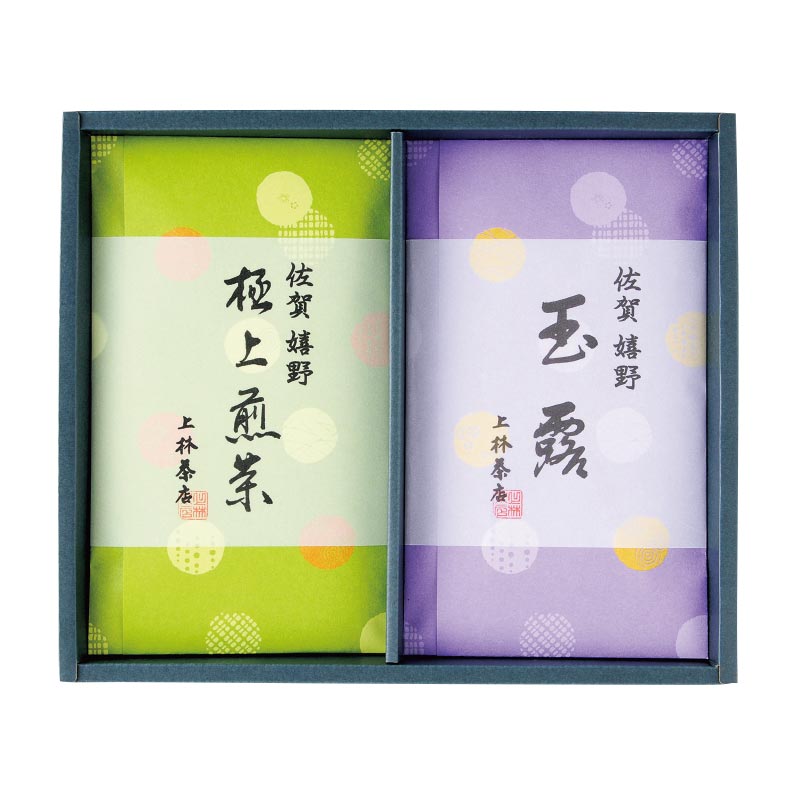 佐賀 嬉野
極上煎茶
上林茶店
佐賀 嬉野
玉露
上林茶店